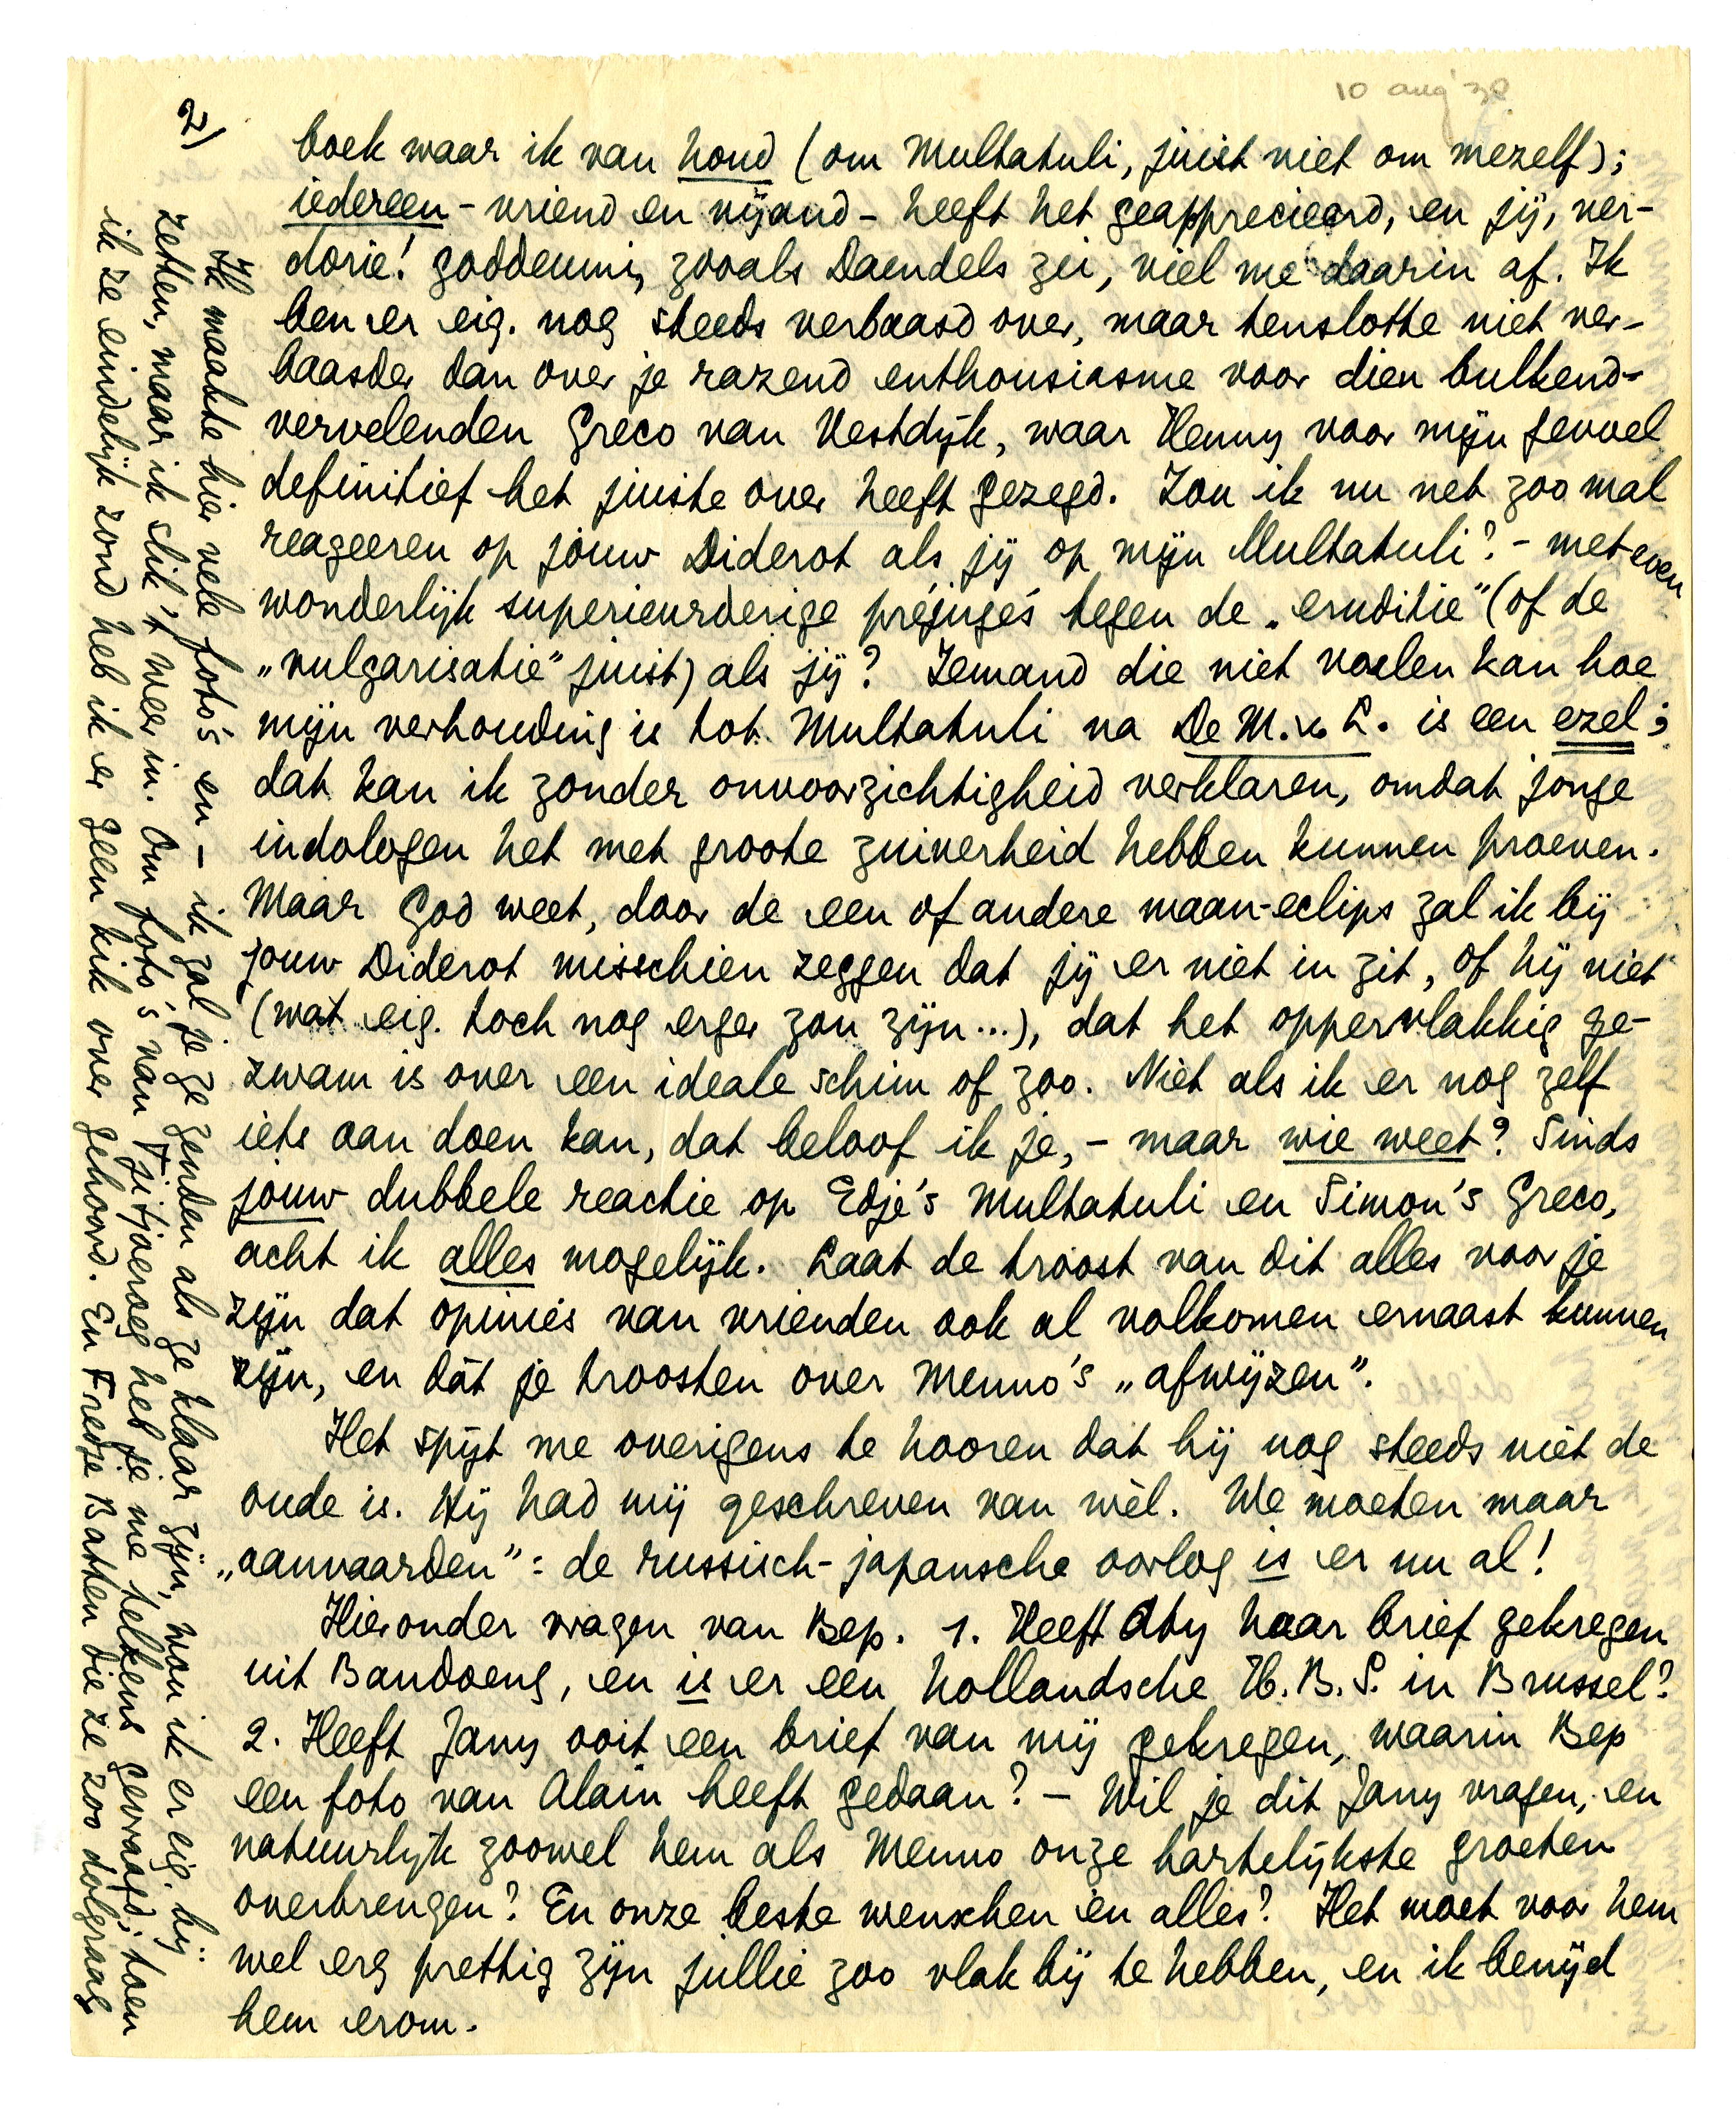 10 aug '38
2)
boek waar ik van houd (om Multatuli, juist niet om mezelf);
iedereen - vriend en vijand - heeft het geapprecieerd, en jij, ver-
dorie! goddeumi, zooals Daendels zei, viel me daarin af. Ik
ben er eig. nog steeds verbaasd over, maar tenslotte niet ver-
baasder dan over je razend enthousiasme voor dien bulkend-
vervelenden Greco van Vestdijk, waar Henny voor mijn gevoel
definitief het juiste over heeft gezegd. Zou ik nu net zoo mal
reageeren op jouw Diderot als jij op mijn Multatuli? - met even
wonderlijk superieurderige préjugés tegen de „eruditie" (of de
„vulgarisatie" juist) als jij? Iemand die niet voelen kan hoe
mijn verhouding is tot Multatuli na De M. v. L. is een ezel;
dat kan ik zonder onvoorzichtigheid verklaren, omdat jonge
indologen het met groote zuiverheid hebben kunnen proeven.
Maar God weet, door de een of andere maan-eclips zal ik bij
jouw Diderot misschien zeggen dat jij er niet in zit, of hij niet
(wat eig. toch nog erger zou zijn...), dat het oppervlakkig ge-
zwam is over een ideale schim of zoo. Niet als ik er nog zelf
iets aan doen kan, dat beloof ik je, - maar wie weet? Sinds
jouw dubbele reactie op Edje's Multatuli en Simon's Greco,
acht ik alles mogelijk. Laat de troost van dit alles voor je
zijn dat opinies van vrienden ook al volkomen ernaast kunnen
zijn, en dát je troosten over Menno's „afwijzen".
Het spijt me overigens te hooren dat hij nog steeds niet de
oude is. Hij had mij geschreven van wèl. We moeten maar
„aanvaarden": de russisch-japansche oorlog is er nu al!
Hieronder vragen van Bep. 1. Heeft Aty haar brief gekregen
uit Bandoeng, en is er een hollandsche H.B.S. in Brussel?
2. Heeft Jany ooit een brief van mij gekregen, waarin Bep
een foto van Alain heeft gedaan? - Wil je dit Jany vragen, en
natuurlijk zoowel hem als Menno onze hartelijkste groeten
overbrengen? En onze beste wenschen en alles? Het moet voor hem
wel erg prettig zijn jullie zoo vlak bij te hebben, en ik benijd
hem erom.
Ik maakte hier vele foto's en - ik zal je ze zenden als ze klaar zijn, wou ik er eig. bij-
zetten, maar ik slik 't weer in. Om foto's van Tjitjoeroeg heb je me telkens gevraagd; toen
ik ze eindelijk zond heb ik er geen kik over gehoord. En Fredje Batten die ze zoo dolgraag